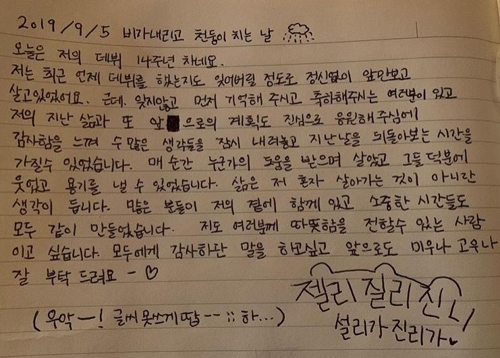 2019/9/5 비가내리고 천둥이 치는 날
오늘은 저의 데뷔 14주년 차네요.
저는 최근 언제 데뷔를 했는지도 잊어버릴 정도로 정신없이 앞만보고
살고있었어요. 근데, 잊지않고 먼저 기억해 주시고 축하해주시는 여러분이 있고
저의 지난 삶과 또 앞으로의 계획도 진심으로 응원해주심에
감사함을 느껴 수 많은 생각들을 잠시 내려놓고 지난날을 뒤돌아보는 시간을
가질수 있었습니다. 매 순간 누군가의 도움을 받으며 살았고 그들 덕분에
웃었고 용기를 낼 수 있었습니다. 삶은 저 혼자 살아가는 것이 아니란
생각이 듭니다. 많은 분들이 저의 곁에 함께 있고 소중한 시간들도
모두 같이 만들었습니다. 저도 여러분께 따뜻함을 전할수 있는 사람
이고 싶습니다. 모두에게 감사하단 말을 하고싶고 앞으로도 미우나 고우나
잘 부탁 드려요 ~ ♡
(우악ㅡ! 글씨 못쓰게땁 --;; 하...)
젤리 질리 진니
설리가 진리가♥